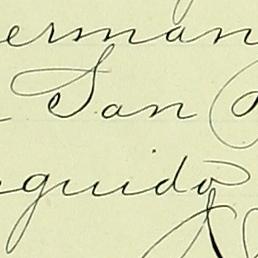 erman
San
guido